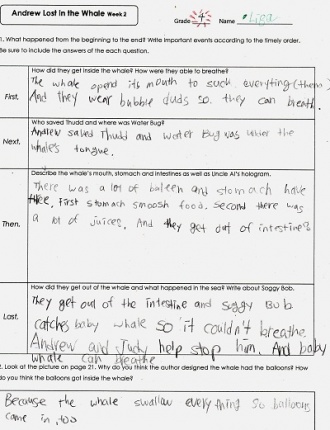 Andrew Lost in the Whale Week 2
Grade 4 Name Lisa
1. What happened from the beginning to the end? Write important events according to the timely order.
Be sure to include the answers of the each question.
How did they get inside the whale? How were they able to breathe?
First,
The whale opend its mouth to suck everyting (them)
And they wear bubble duds so they can breath.
Who saved Thudd and where Water Bug was?
Next,
Andrew saved Thudd and Water Bug was under the
whale's tongue.
Describe the whale's mouth, stomach and intestines as well as Uncle Al's hologram.
Then,
There was a lot of baleen and stomach have
three, First stomach smoosh food. Second there was
a lot of juices. And they get out of intestine?
How did they get out of the whale and what happened in the sea? Write about Soggy Bob.
Last,
They get out of the intestine and Soggy Bob
catches baby whale so it couldn't breathe.
Andrew and Judy help stop him. And baby
whale can breathe
2. Look at the picture on page 21. Why do you think the author designed the whale had the balloons? How
do you think the balloons got inside the whale?
Because the whale swallow everything so balloons
came in, too